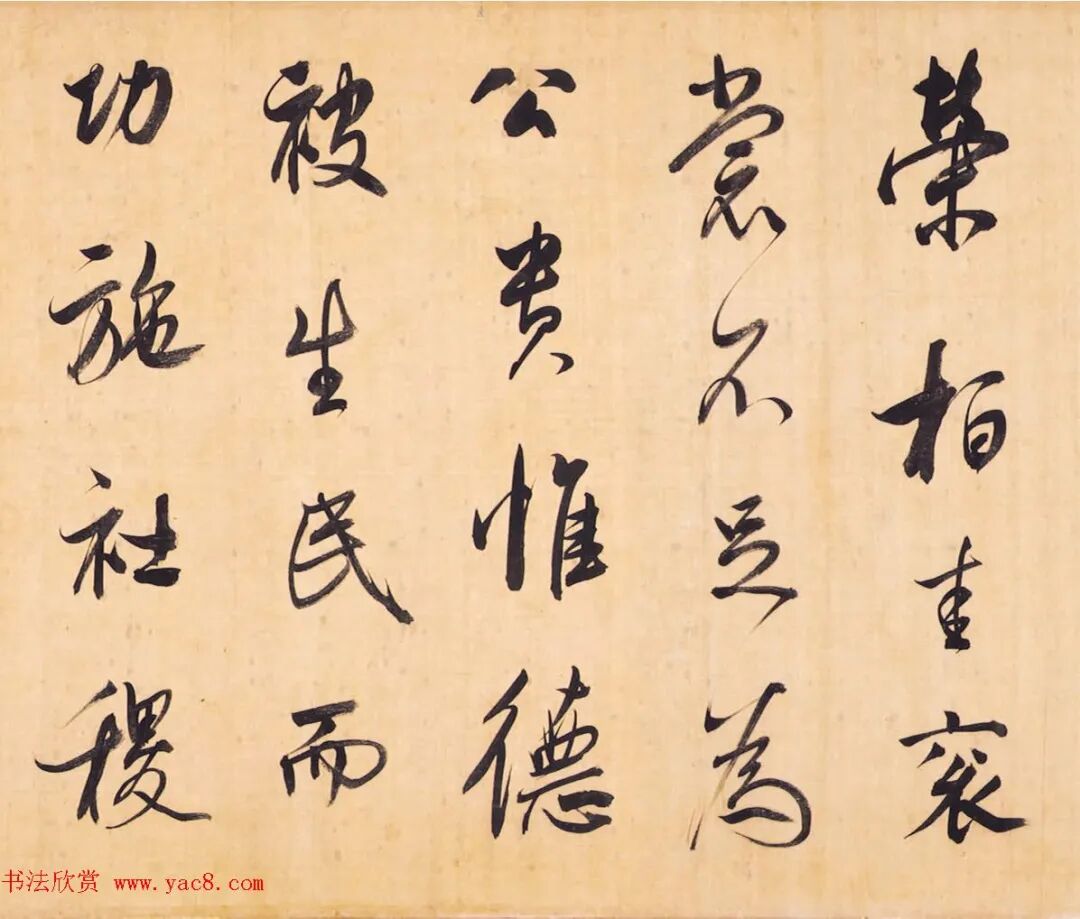 榮柏圭袞
裳不足為
公貴惟德
被生民而
功施社稷
书法欣赏 www.yac8.com